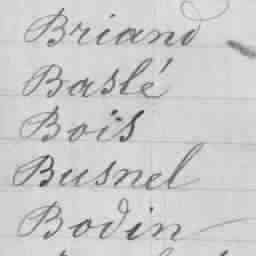 Briand
Baslé
Bois
Busnel
Bodin